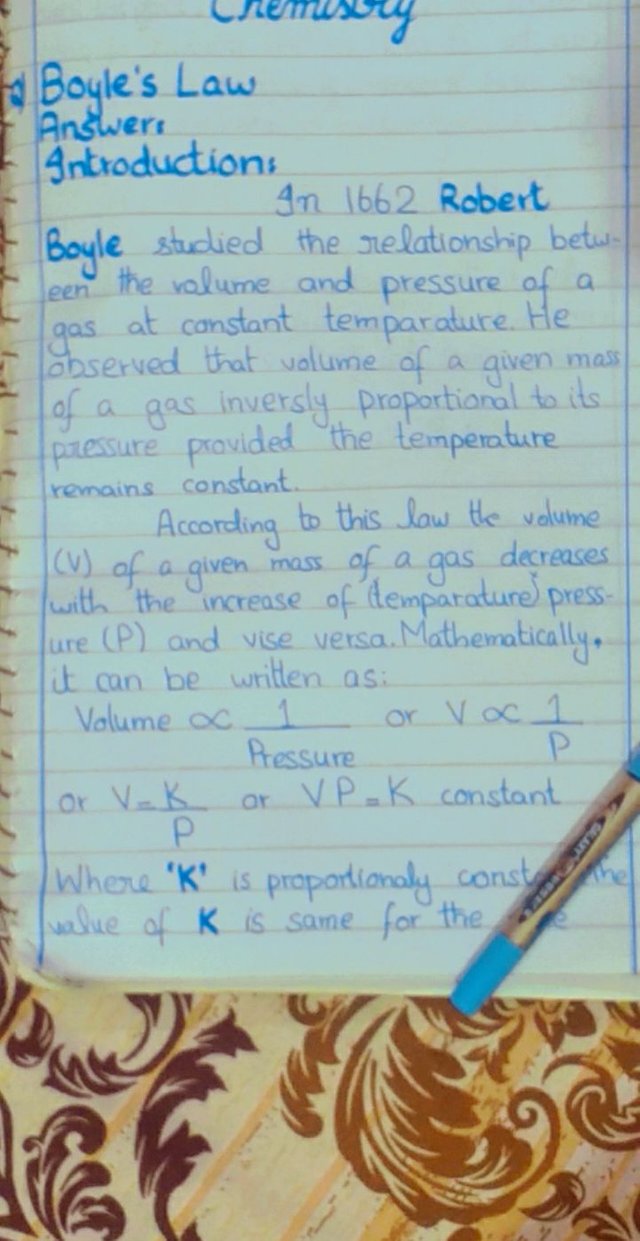 Chemistry
Boyle's Law
Answer:
Introduction:
In 1662 Robert
Boyle studied the relationship betw-
een the volume and pressure of a
gas at constant temparature. He
observed that volume of a given mass
of a gas inversly proportional to its
pressure provided the temperature
remains constant.
According to this law the volume
(V) of a given mass of a gas decreases
with the increase of (temparature) press-
ure (P) and vise versa. Mathematically,
it can be written as:
Volume ∝ 1 or V ∝ 1
Pressure P
or V = K or VP = K constant
P
Where 'K' is proportionaly The
value of K is same for the